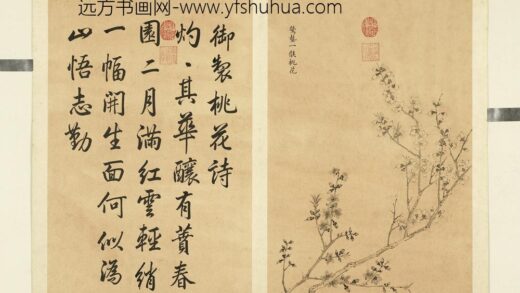 远方书画网-www.yfshuhua.com
御製桃花詩
灼〻其華釀有蕡春
園二月滿紅雲輕綃
一幅開生面何似溈
山悟志勤
一甁桃花